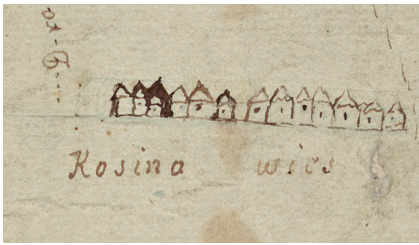 Kosina wies